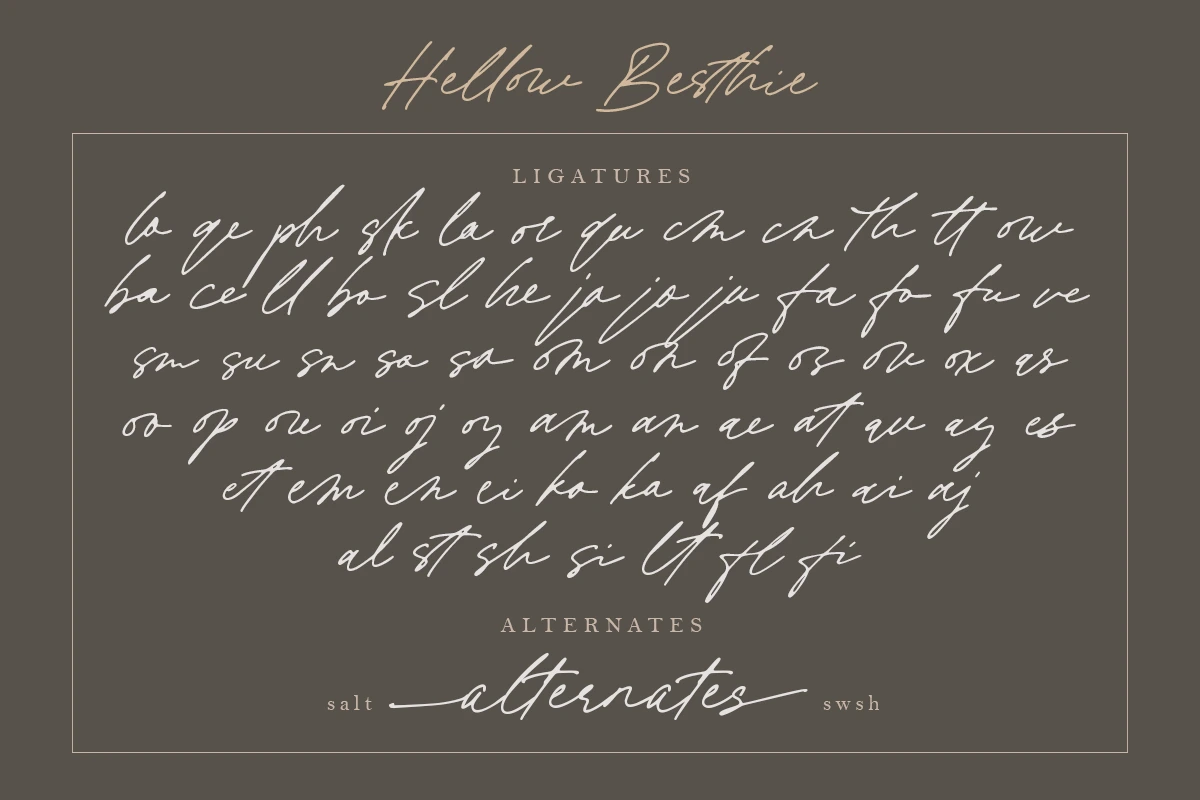 Hellow Besthie
LIGATURES
lo ge ph sk la or qu cm cn th tt ow
ba ce ll bo sl he ja jo ju fa fo fu ve
sm su sn sa so om on of os ov ox as
oo op ou oi oj oy am an ae at au ay es
et em en ei ko ka af ah ai aj
al st sh si lt fl fi
ALTERNATES
salt alternates swsh